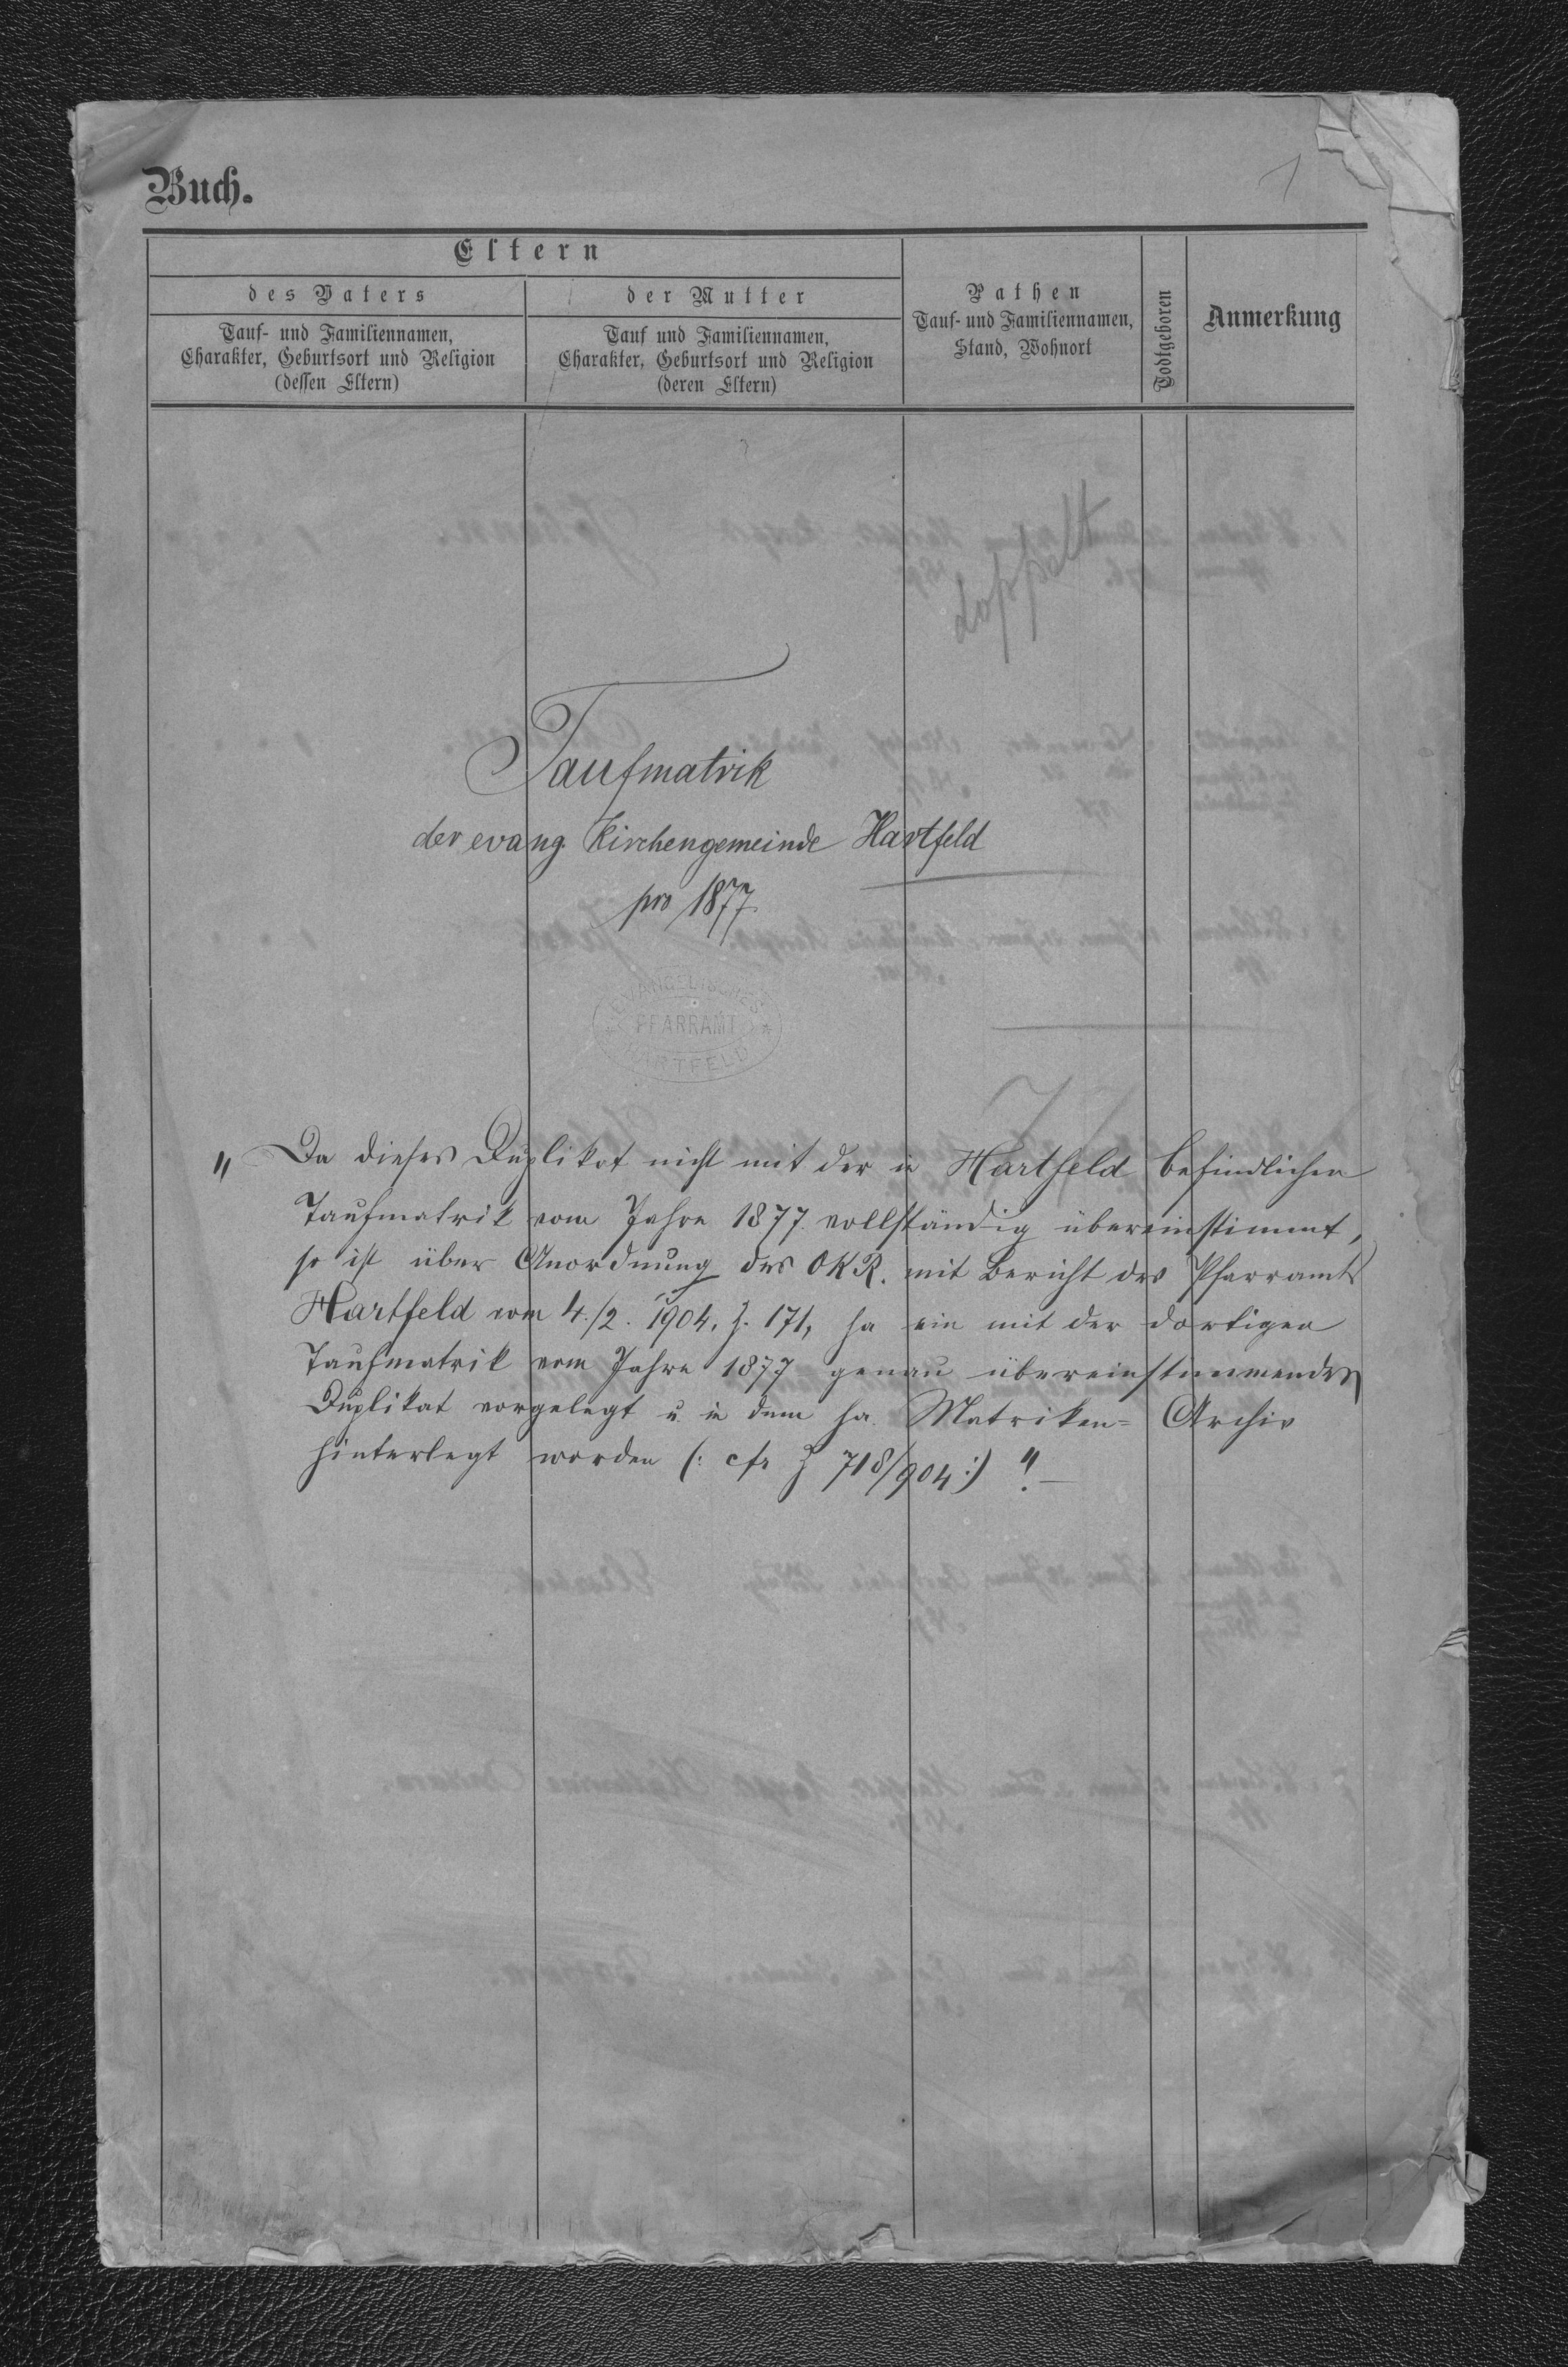 1
Buch.
Eltern
des Vaters
Tauf- und Familiennamen,
Charakter, Geburtsort und Religion
(dessen Eltern)
der Mutter
Tauf und Familiennamen,
Charakter, Geburtsort und Religion
(deren Eltern)
Pathen
Tauf- und Familiennamen,
Stand, Wohnort
Todtgeboren
Anmerkung
doppelt
Taufmatrik
der evang. Kirchengemeinde Hartfeld
pro 1877.
EVANGELISCHES
PFARRAMT
HARTFELD
" Da dieses Duplikat nicht mit der in Hartfeld befindlichen
Taufmatrik vom Jahre 1877 vollständig übereinstimmt,
so ist über Anordnung des OKR. mit Bericht des Pfarramts
Hartfeld vom 4./2. 1904. Z. 171, ha ein mit der dortigen
Taufmatrik vom Jahre 1877 genau übereinstimmendes
Duplikat vorgelegt u in dem ha. Matriken- Archiv
hinterlegt worden (: cfr Z 718/904 :) ".—